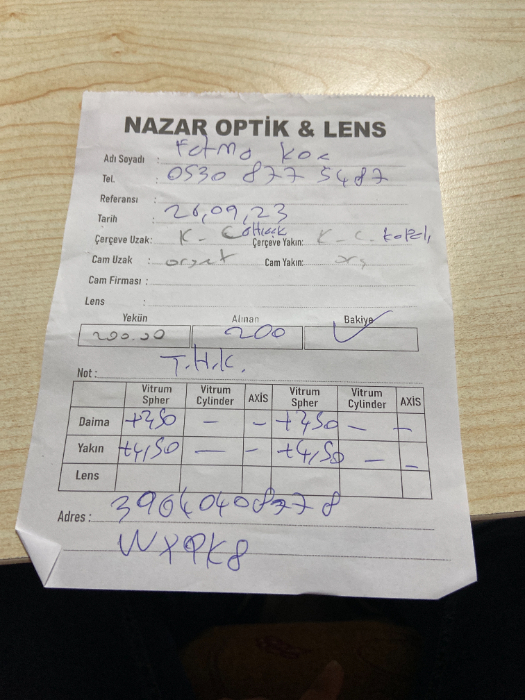 NAZAR OPTİK & LENS
Adı Soyadı : Fatma Koc
Tel. : 0530 877 5487
Referansı :
Tarih : 26,09,23
Çerçeve Uzak: K - C Çerçeve Yakın: K - C.
Cam Uzak : Cam Yakın:
Cam Firması :
Lens :
Yekün Alınan Bakiye
200.00 200 ✓
Not : T.H.K.
Vitrum Spher Vitrum Cylinder AXİS Vitrum Spher Vitrum Cylinder AXİS
Daima +2,50 — — +2,50 — —
Yakın +4,50 — — +4,50 — —
Lens
Adres : 39640408778
WXPK8